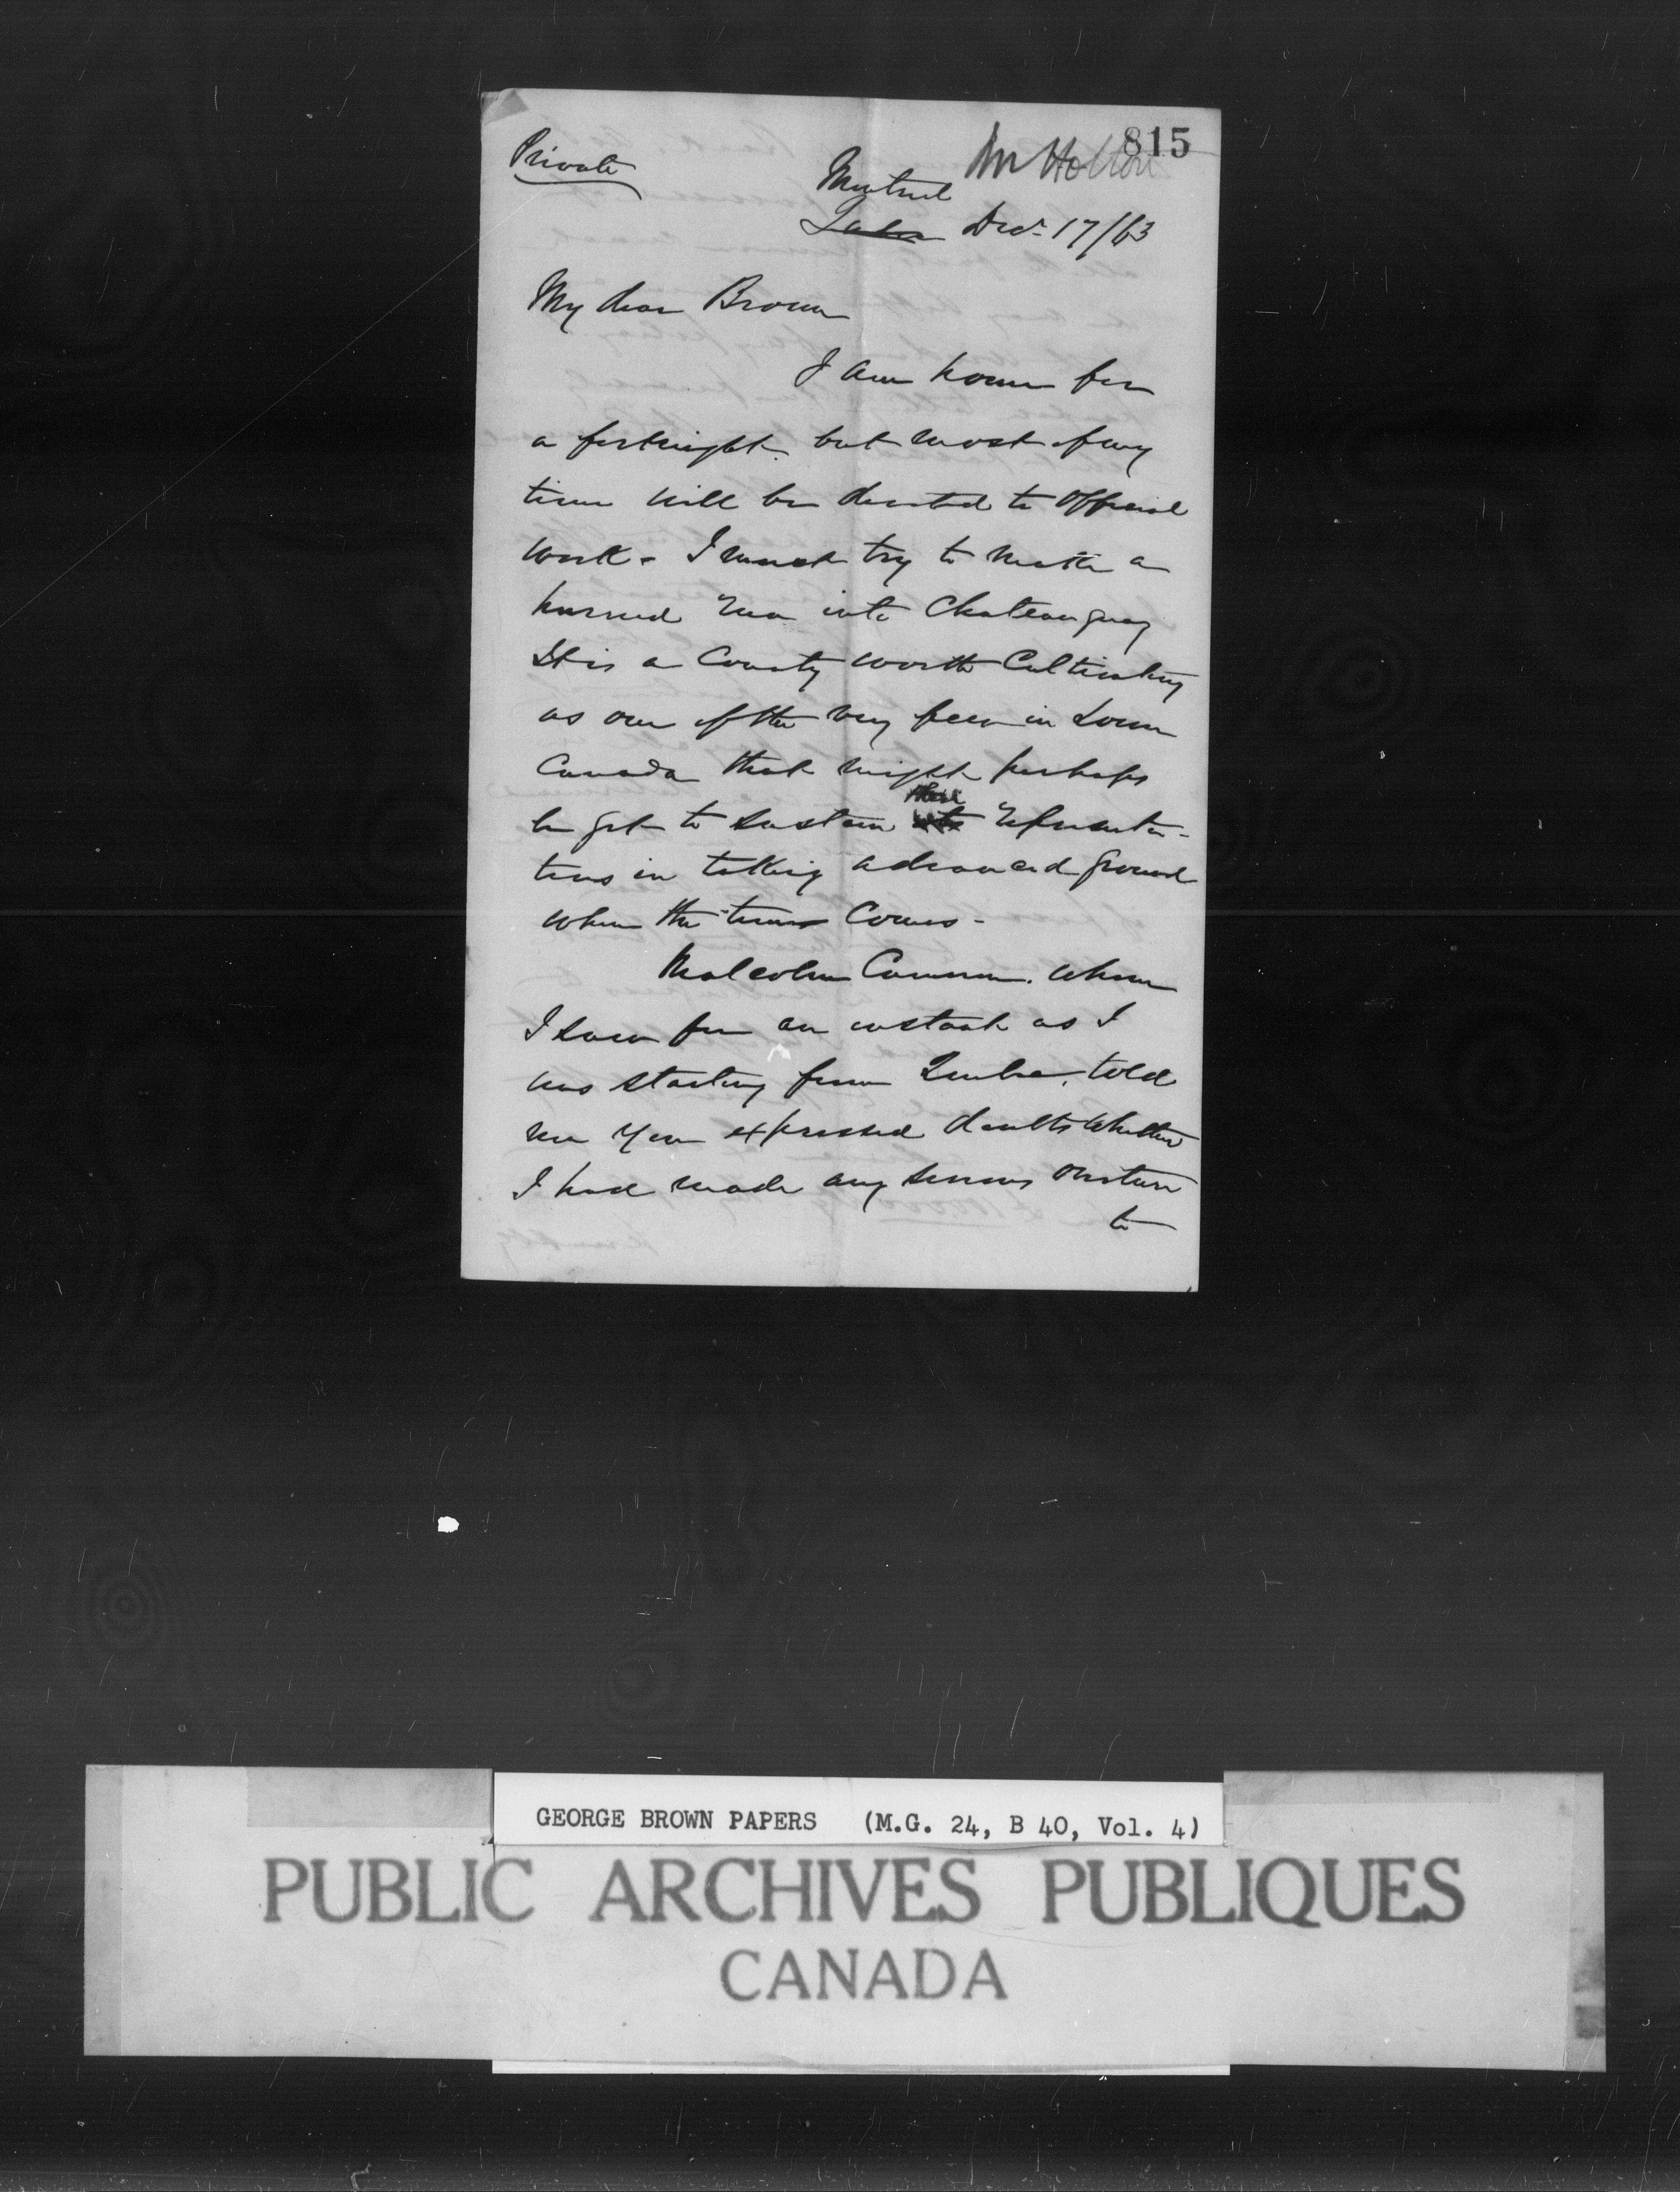 815
Mr Holton
Private
Montreal
Quebec Decr 17/63
My dear Brown
I am home for
a fortnight but most of my
time will be devoted to Official
work - I must try to make a
hurried run into Chateauguay
It is a County worth Cultivating
as one of the very few in Lower
Canada that might perhaps
be got to sustain their representa-
tives in taking advanced ground
when the time Comes -
Malcolm Cameron. whom
I saw for an instant as I
was starting from Quebec, told
me you expressed doubts whether
I had made any serious overture
to
GEORGE BROWN PAPERS (M.G. 24, B 40, Vol. 4)
PUBLIC ARCHIVES PUBLIQUES
CANADA